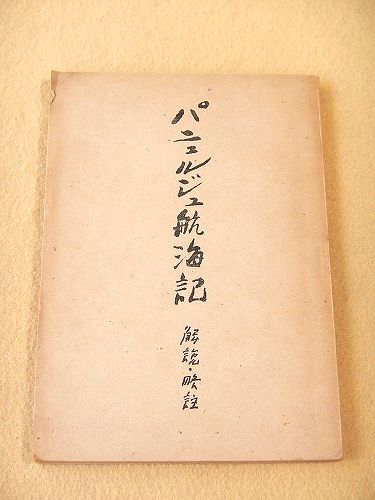 パニュルジュ航海記
解説・略註